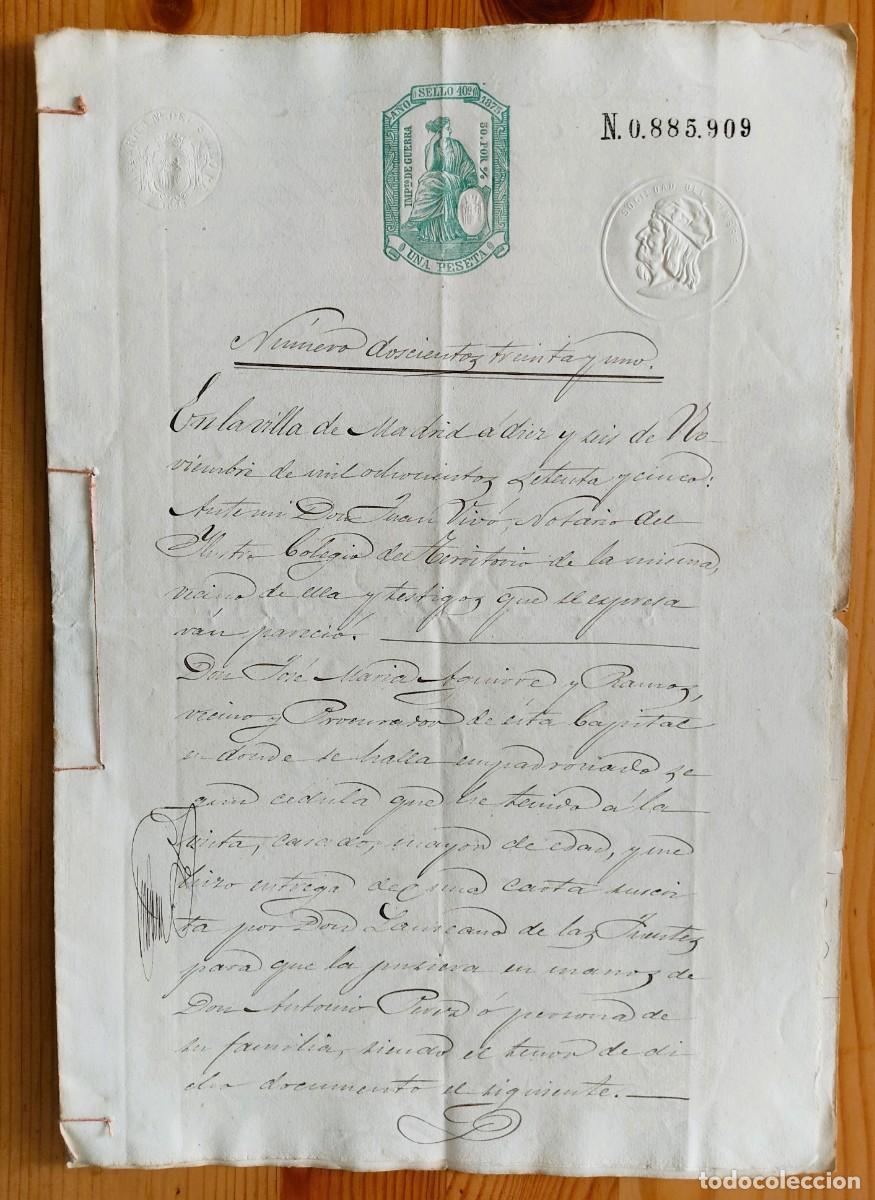 AÑO SELLO 10º 1875
IMPto DE GUERRA
50 POR %
UNA PESETA
N.0.885.909
SOCIEDAD DEL TIMBRE
Número doscientos treinta y uno.
En la villa de Madrid á diez y seis de No-
viembre de mil ochocientos setenta y cinco:
Ante mi Don Juan Vivó, Notario del
Ilustre Colegio del Territorio de la misma,
vecino de ella y testigos que se espresa
rán pareció.
Don José Maria Aguirre y Ramos,
vecino y Procurador de esta Capital
en donde se halla empadronado se
gun cedula que he tenido á la
vista, casado, mayor de edad, y me
hizo entrega de una carta suscri
ta por Don Laureano de las Fuentes
para que la pusiera en manos de
Don Antonio Perez ó persona de
su familia, siendo el tenor de di
cho documento el siguiente.
todocoleccion